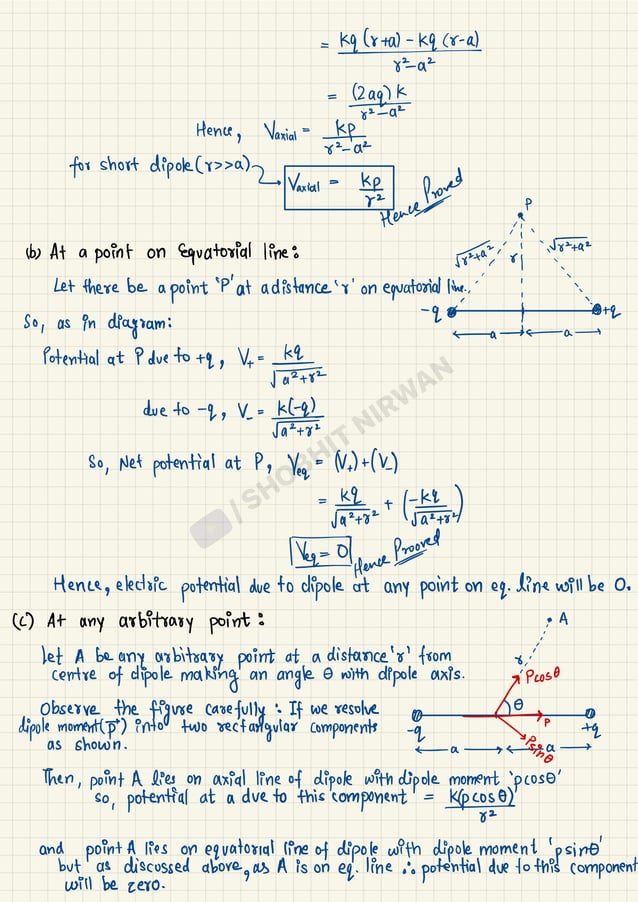 = kq (r+a) - kq (r-a) / r²-a²
= (2aq) k / r²-a²
Hence, Vaxial = kp / r²-a²
for short dipole (r>>a) → Vaxial = kp / r²
Hence Proved
(b) At a point on Equatorial line:
P
√r²+a² r √r²+a²
-q +q
a a
Let there be a point 'P' at a distance 'r' on equatorial line.
So, as in diagram:
Potential at P due to +q, V+ = kq / √a²+r²
due to -q, V- = k(-q) / √a²+r²
So, Net potential at P, Veq = (V+)+(V-)
= kq / √a²+r² + (-kq / √a²+r²)
Veq = 0
Hence Prooved
Hence, electric potential due to dipole at any point on eq. line will be 0.
(c) At any arbitrary point:
A
r
Let A be any arbitrary point at a distance 'r' from
centre of dipole making an angle θ with dipole axis.
Pcosθ
θ
P
Psinθ
-q +q
a a
Observe the figure carefully : If we resolve
dipole moment (p⃗) into two rectangular components
as shown.
Then, point A lies on axial line of dipole with dipole moment 'pcosθ'
so, potential at a due to this component = K(pcosθ) / r²
and point A lies on equatorial line of dipole with dipole moment 'psinθ'
but as discussed above, as A is on eq. line ∴ potential due to this component
will be zero.
/ SHOBHIT NIRWAN